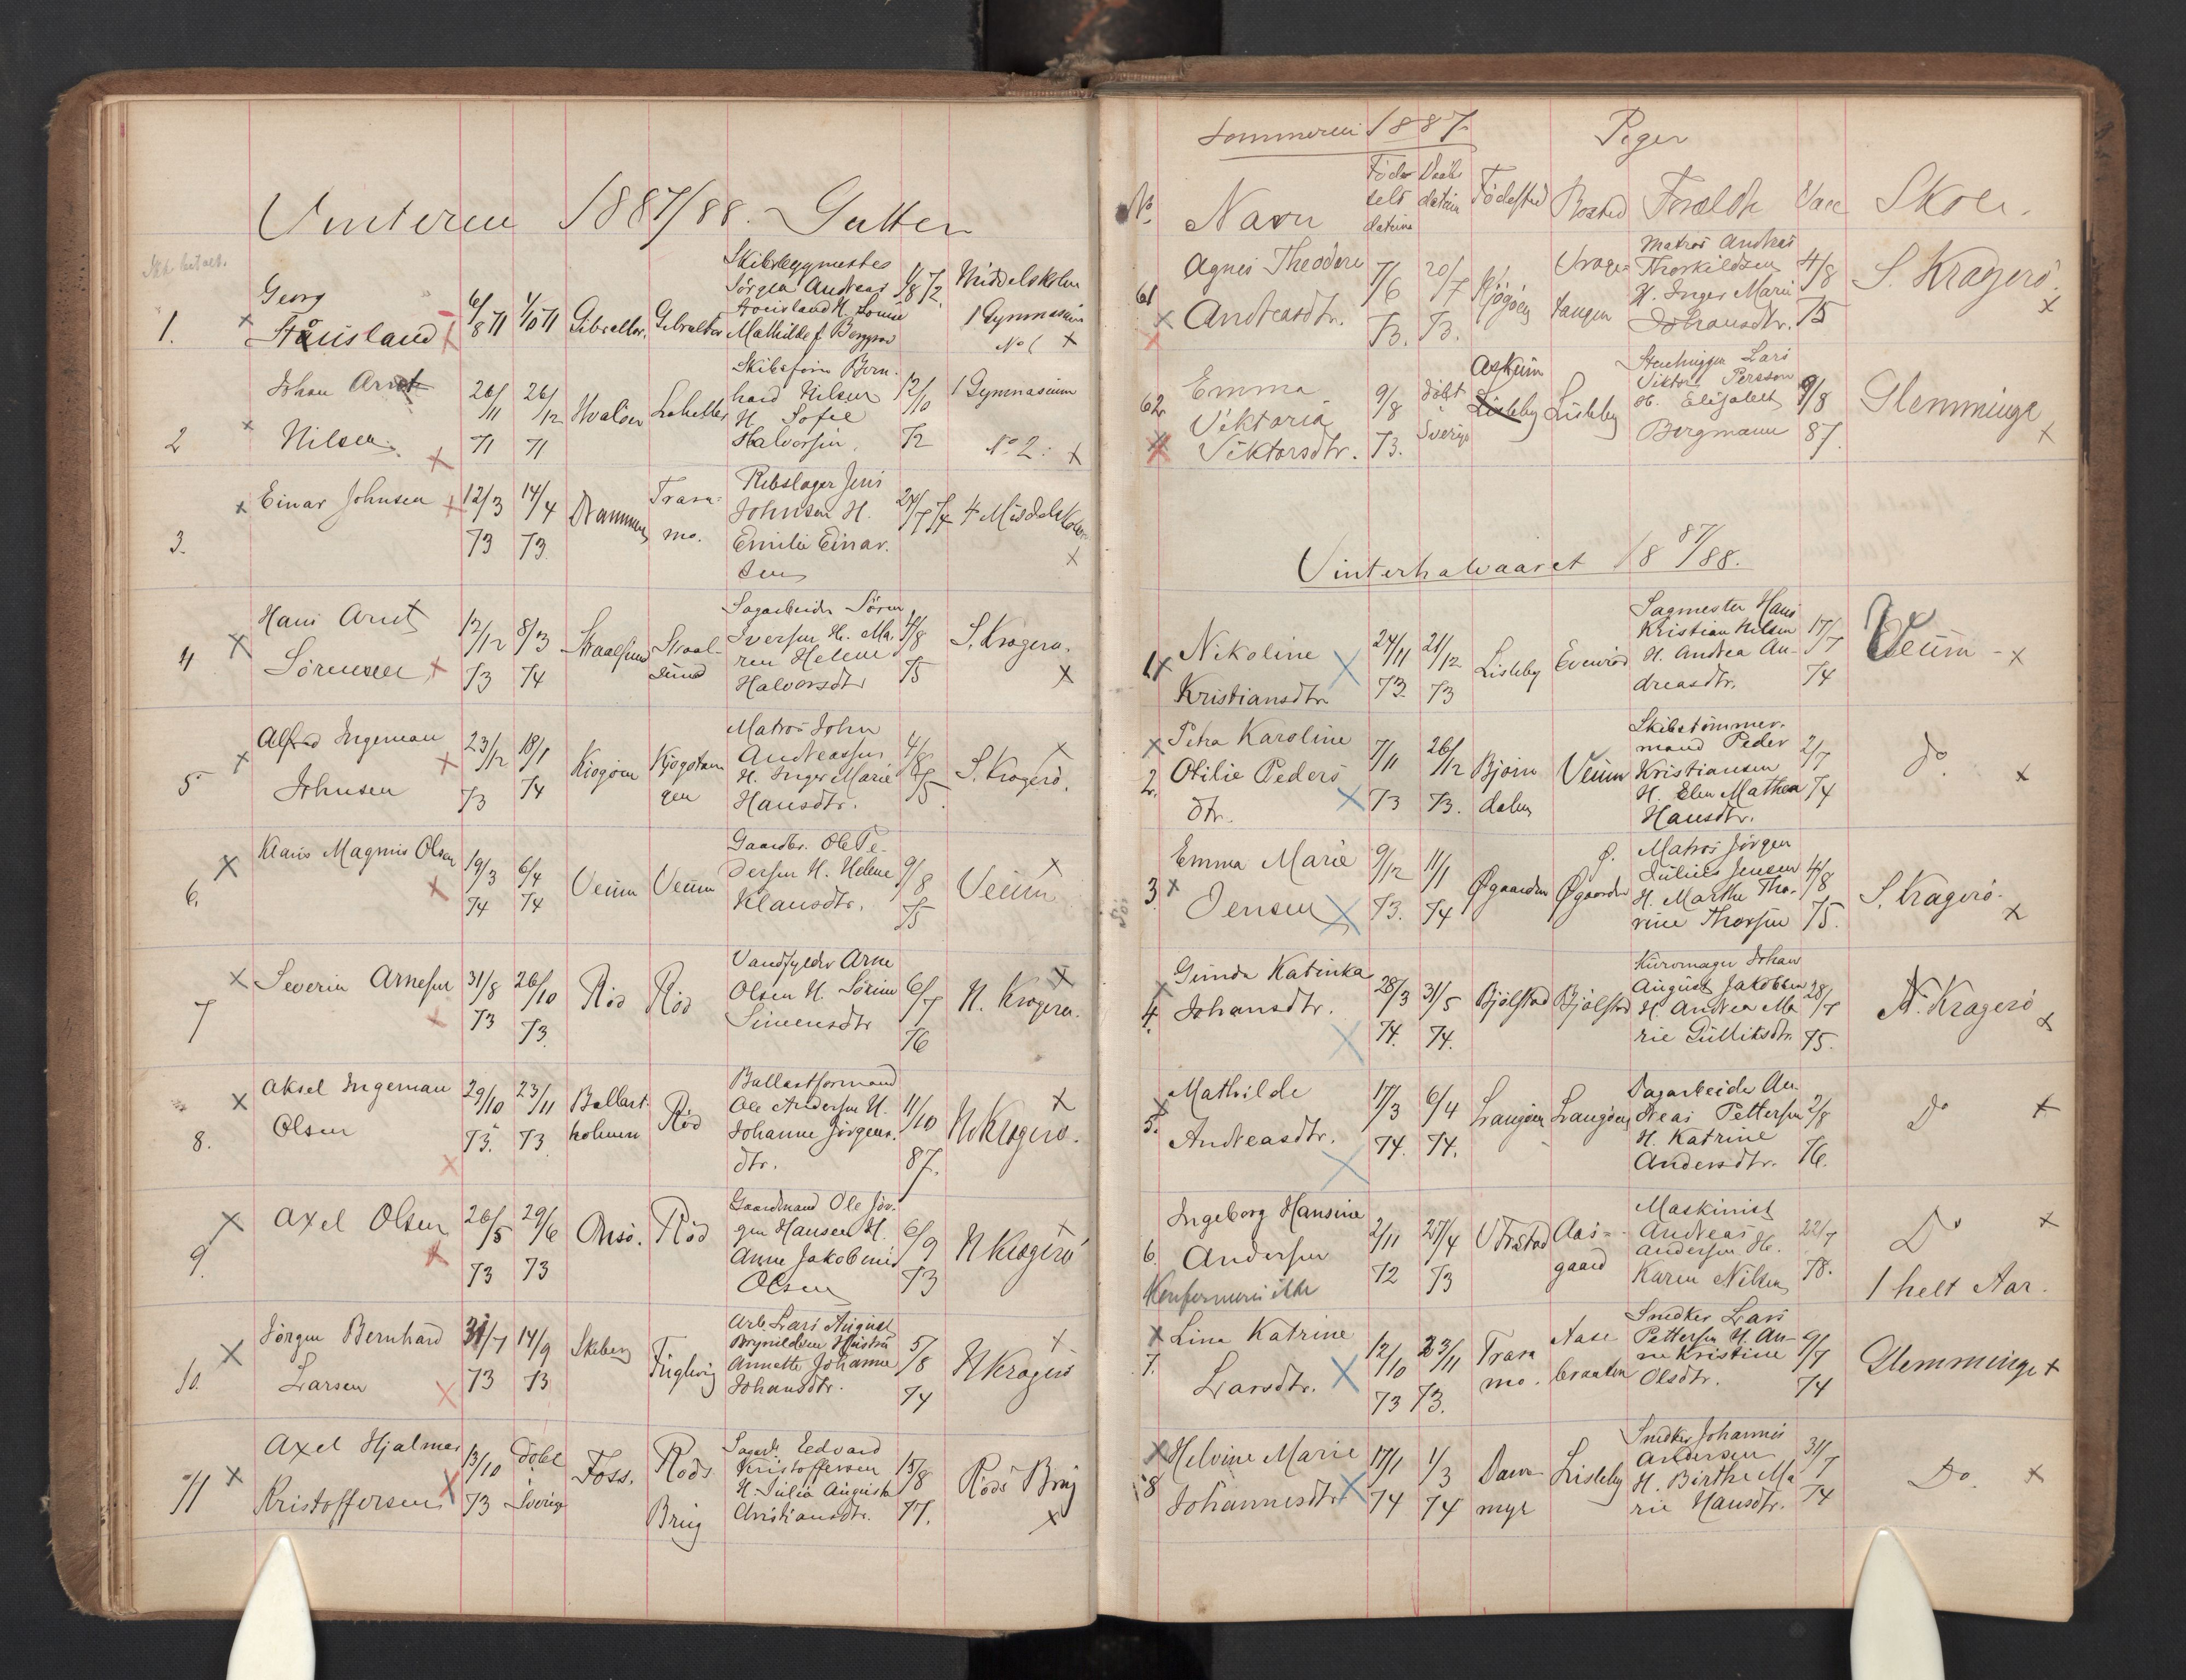 Vinteren 1887/88. Gutter
Ikke betalt.
1. Georg Stousland 6/8 71 1/10 71 Gibraltar. Gibraltar Skibsbygmester Jörgen Andreas Stousland H. Louise Mathilde f. Berggren 1/8 72. Middelskolen 1 Gymnasium No 1
2 Johan Arnt Nilsen. 26/11 71 26/12 71 Hvaløer Lahelle Skibsfører Bernhard Nilsen H. Sofie Halvorsen. 12/10 72 1 Gymnasium No 2.
3. Einar Johnsen 12/3 73 14/4 73. Drammen Trara mo. Rebslager Jens Johnsen H. Emilie Einarsen 24/7 74 4 Middelskolen
4 Hans Arnt Sörensen 12/12 73 8/3 74 Straalsund Straalsund Sagarbeider Sören Iversen H. Maren Helene Halvorsdtr 4/8 75 S. Kragerø.
5 Alfred Ingeman Johnsen 23/12 73 18/1 74 Kiøgøen Kjøgotangen Matros John Andreassen H. Inger Marie Hansdtr. 4/8 75. S. Kragerö.
6. Klaus Magnus Olsen 19/3 74 6/4 74 Veum Veum Gaardbr. Ole Pedersen H. Helene Klausdtr. 9/8 75 Veum
7 Severin Arnesen 31/8 73 26/10 73. Röd Röd Vandfylder Arne Olsen H. Sörine Simensdtr 6/7 76 N. Kragerø.
8. Aksel Ingeman Olsen 29/10 73. 23/11 73 Ballastholmen Röd Ballastformand Ole Andersen H. Johanne Jörgensdtr. 11/10 87. N. Kragerø.
9. Axel Olsen 26/5 73 29/6 73 Onsö. Röd Gaardmand Ole Jörgen Hansen H. Anne Jakobine Olsen 6/9 73 N Kragerö
10. Jörgen Bernhard Larsen 31/7 73 14/9 73 Skeberg Fuglevig Arb. Lars August Brynildsen Hustru Annette Johanne Johansdtr. 5/8 74 N Kragerö
11 Axel Hjalmar Kristoffersen 13/10 73 Döbt i Sverige Foss. Röds Brug Edvard Kristoffersen H. Julia Augusta Christiansdtr. 15/8 77. Röds Brug
Sommeren 1887. Piger
No. Navn Födselsdatum Daabsdatum Födested Bosted Forældre Vac Skole.
61 Agnes Theodore Andreasdtr. 7/6 73. 20/7 73. Kjögöen tangen Matros Andreas Thorkildsen H. Inger Marie Johansdtr. 4/8 75 S. Kragerö.
62 Emma Viktoria Viktorsdtr. 9/8 73. döbt i Sverige Askim Lisleby Lisleby Stenhugger Lars Viktor Persson H. Elisabeth Bergmann 9/8 87. Glemminge
Vinterhalvaaret 1887/88.
1 Nikoline Kristiansdtr. 24/11 73. 21/12 73 Lisleby Evenröd Sagmester Hans Kristian Nilsen H. Andrea Andreasdtr. 17/7 74 Veum
2. Petra Karoline Otilie Pedersdtr. 7/11 73 26/12 73. Bjørndalen Veum Skibstømmermand Peder Kristiansen H. Elen Mathea Hansdtr. 2/7 74 Do.
3 Emma Marie Jensen 9/12 73. 11/1 74 Øgaarden Ø. Øgaarden Matros Jörgen Julius Jensen H. Marthe Thorine Thorsen 4/8 75. S. Kragerö.
4. Gunda Katinka Johansdtr. 28/3 74. 31/5 74. Bjölstad Bjölstad Kurvmager Johan August Jakobsen H. Andrea Marie Gulliksdtr. 28/7 75. N. Kragerö
5. Mathilde Andreasdtr. 17/3 74. 6/4 74. Langøen Langøen Dagarbeider Andreas Pettersen H. Katrine Andersdtr. 2/8 76. Do
6 Ingeborg Hansine Andersen 2/11 72 27/4 73 V. Fredrikstad Aasgaard Maskinist Andreas Andersen H. Karen Nilsen 22/7 78. Do
Konfirmeres ikke
1 helt Aar.
7. Lina Katrine Larsdtr. 12/10 73 23/11 73. Trara mo. Aasebraaten Snedker Lars Pettersen H. Anne Kristine Olsdtr. 9/7 74 Glemminge
8 Helvine Marie Johannesdtr. 17/1 74 1/3 74 Dammyr Lisleby Snedker Johannes Andersen H. Birthe Marie Hansdtr. 31/7 74 Do.